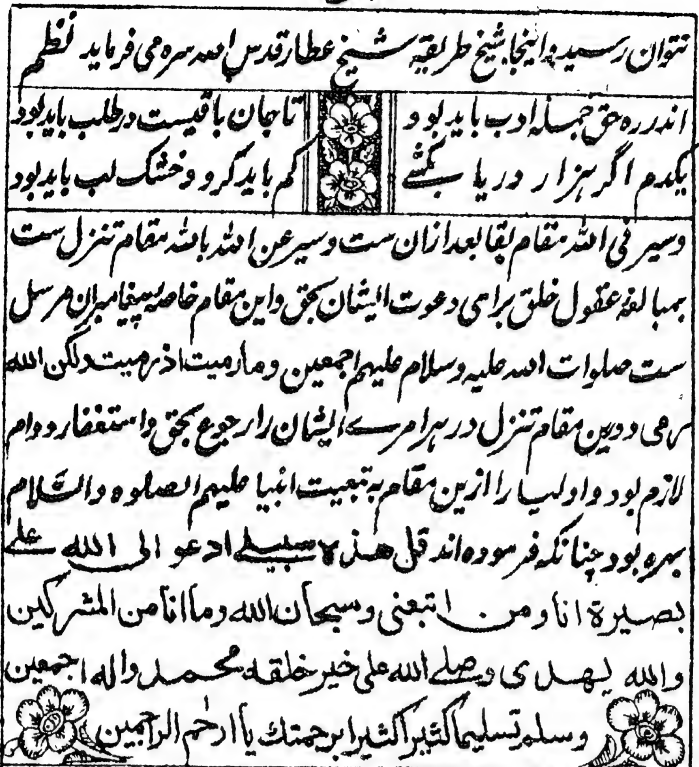 نتوان رسید و اینجا شیخ طریقه شیخ عطار قدس الله سره می فرماید نظم
اندر ره حق جمله ادب باید بود و تا جان باقیست در طلب باید بود
یکدم اگر هزار دریا بکشے کم باید کرد و خشک لب باید بود
و سیر فی الله مقام بقا بعد ازان ست و سیر عن الله بالله مقام تنزل ست
بمبالغه عقول خلق برای دعوت ایشان بحق و این مقام خاصه پیغامبران مرسل
ست صلوات الله علیه وسلام علیهم اجمعین وما رمیت اذ رمیت ولکن الله
رمی و درین مقام تنزل در هر امرے ایشان را رجوع بحق و استغفار دوام
لازم بود و اولیا را ازین مقام به تبعیت انبیا علیهم الصلوه والسلام
بهره بود چنانکه فرموده اند قل هذه سبیلے ادعو الی الله علے
بصیرة انا ومن اتبعنی وسبحان الله وما انا من المشرکین
والله یهدی وصلے الله علی خیر خلقه محمد واله اجمعین
وسلم تسلیما کثیرا کثیرا برحمتك یا ارحم الراحمین